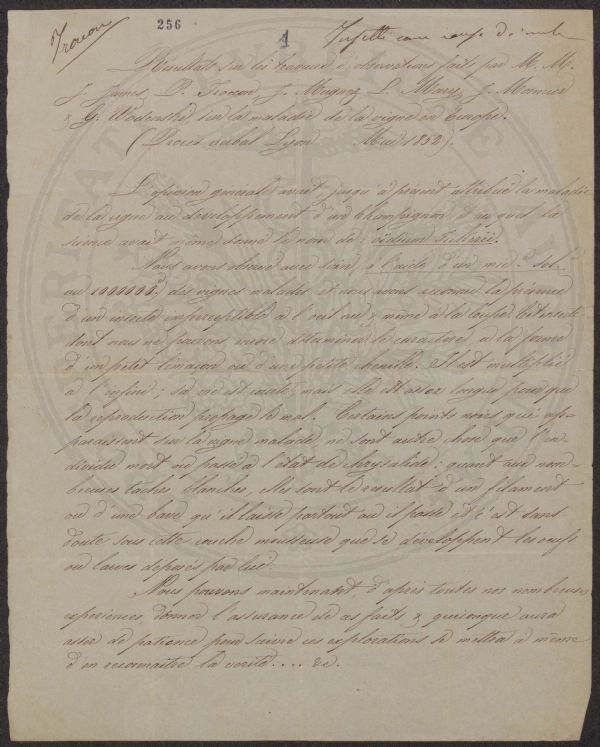 Trouon
256
1
Résultats sur les travaux d'observations faits par M. M.
J. James, P. Trocon, J. Mugnoz, L. Marey, J. Monnier
& G. sur la maladie de la vigne en Europe.
(Procès verbal Lyon Mai 1852).
L'opinion générale avait jusqu'à présent attribué la maladie
de la vigne au développement d'un champignon auquel la
science avait même donné le nom de: oïdium Tukerii.
Nous avons observé avec soin, à l'aide d'un mic. Sol.
au 1000000.e des vignes malades et nous avons reconnu la présence
d'un insecte imperceptible à l'oeil nu & même à la loupe. Cet insecte
dont nous ne pouvons encore déterminer le caractère a la forme
d'un petit limaçon ou d'une petite chenille. Il est multiplié
à l'infini; sa vie est courte, mais elle est assez longue pour que
la reproduction propage le mal. Certains points noirs qui ap-
paraissent sur la vigne malade, ne sont autre chose que l'in-
dividu mort ou passé à l'état de chrysalide: quant aux nom-
breuses taches blanches, elles sont le résultat d'un filament
ou d'une bave qu'il laisse partout où il passe et c'est sans
doute sous cette couche mousseuse que se développent les oeufs
ou larves déposés par lui.
Nous pouvons maintenant, d'après toutes nos nombreuses
expériences, donner l'assurance de ces faits, & quiconque aura
assez de patience pour suivre ces explorations se mettra à même
d'en reconnaître la vérité.... &c.